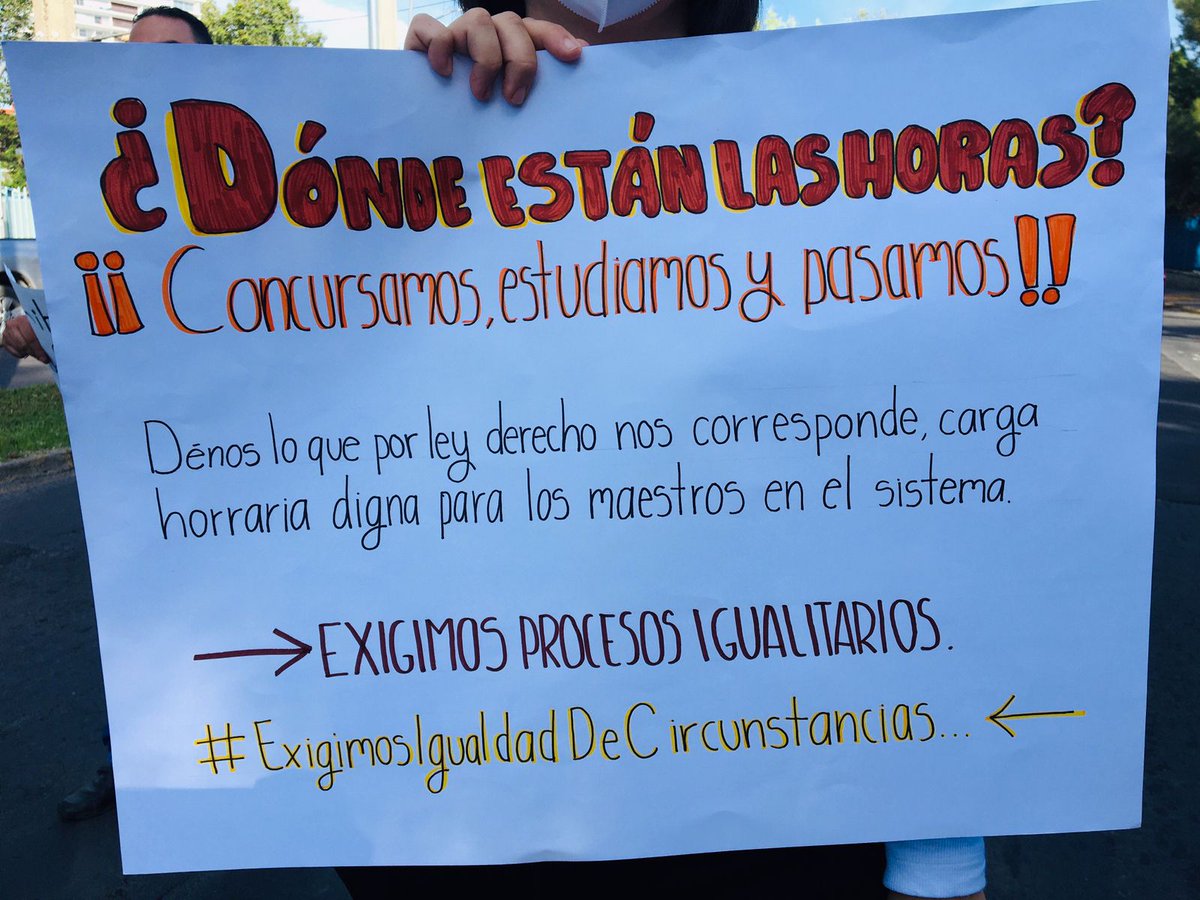 ¿DÓNDE ESTÁN LAS HORAS?
¡¡Concursamos, estudiamos y pasamos!!
Dénos lo que por ley derecho nos corresponde, carga
horraria digna para los maestros en el sistema.
→ EXIGIMOS PROCESOS IGUALITARIOS.
#ExigimosIgualdadDeCircunstancias... ←